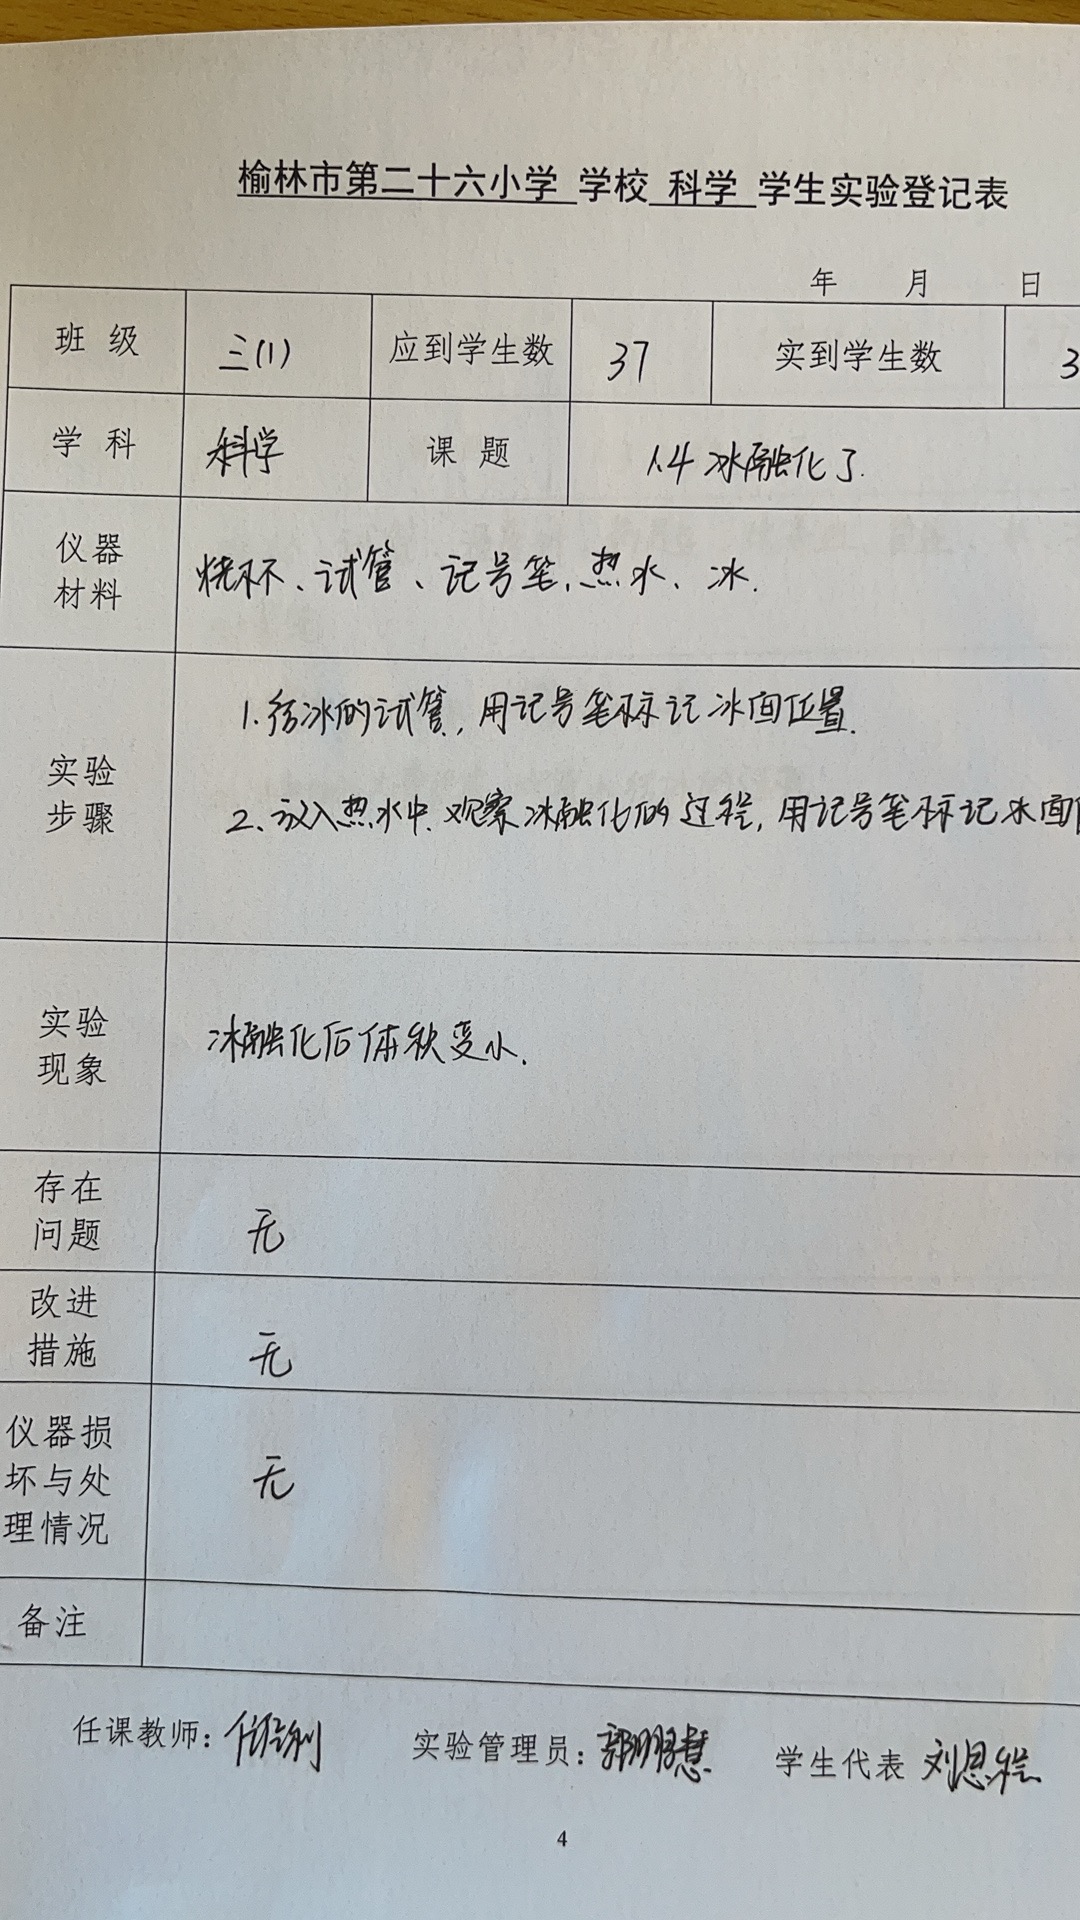 榆林市第二十六小学 学校 科学 学生实验登记表
年 月 日
班 级 三(1) 应到学生数 37 实到学生数 3
学 科 科学 课 题 1.4 冰融化了.
仪器
材料
烧杯、试管、记号笔、热水、冰.
实验
步骤
1.结冰的试管,用记号笔标记冰面位置.
2、放入热水中.观察冰融化的过程,用记号笔标记水面
实验
现象
冰融化后体积变小.
存在
问题
无
改进
措施
无
仪器损
坏与处
理情况
无
备注
任课教师: 实验管理员: 学生代表 刘思
4